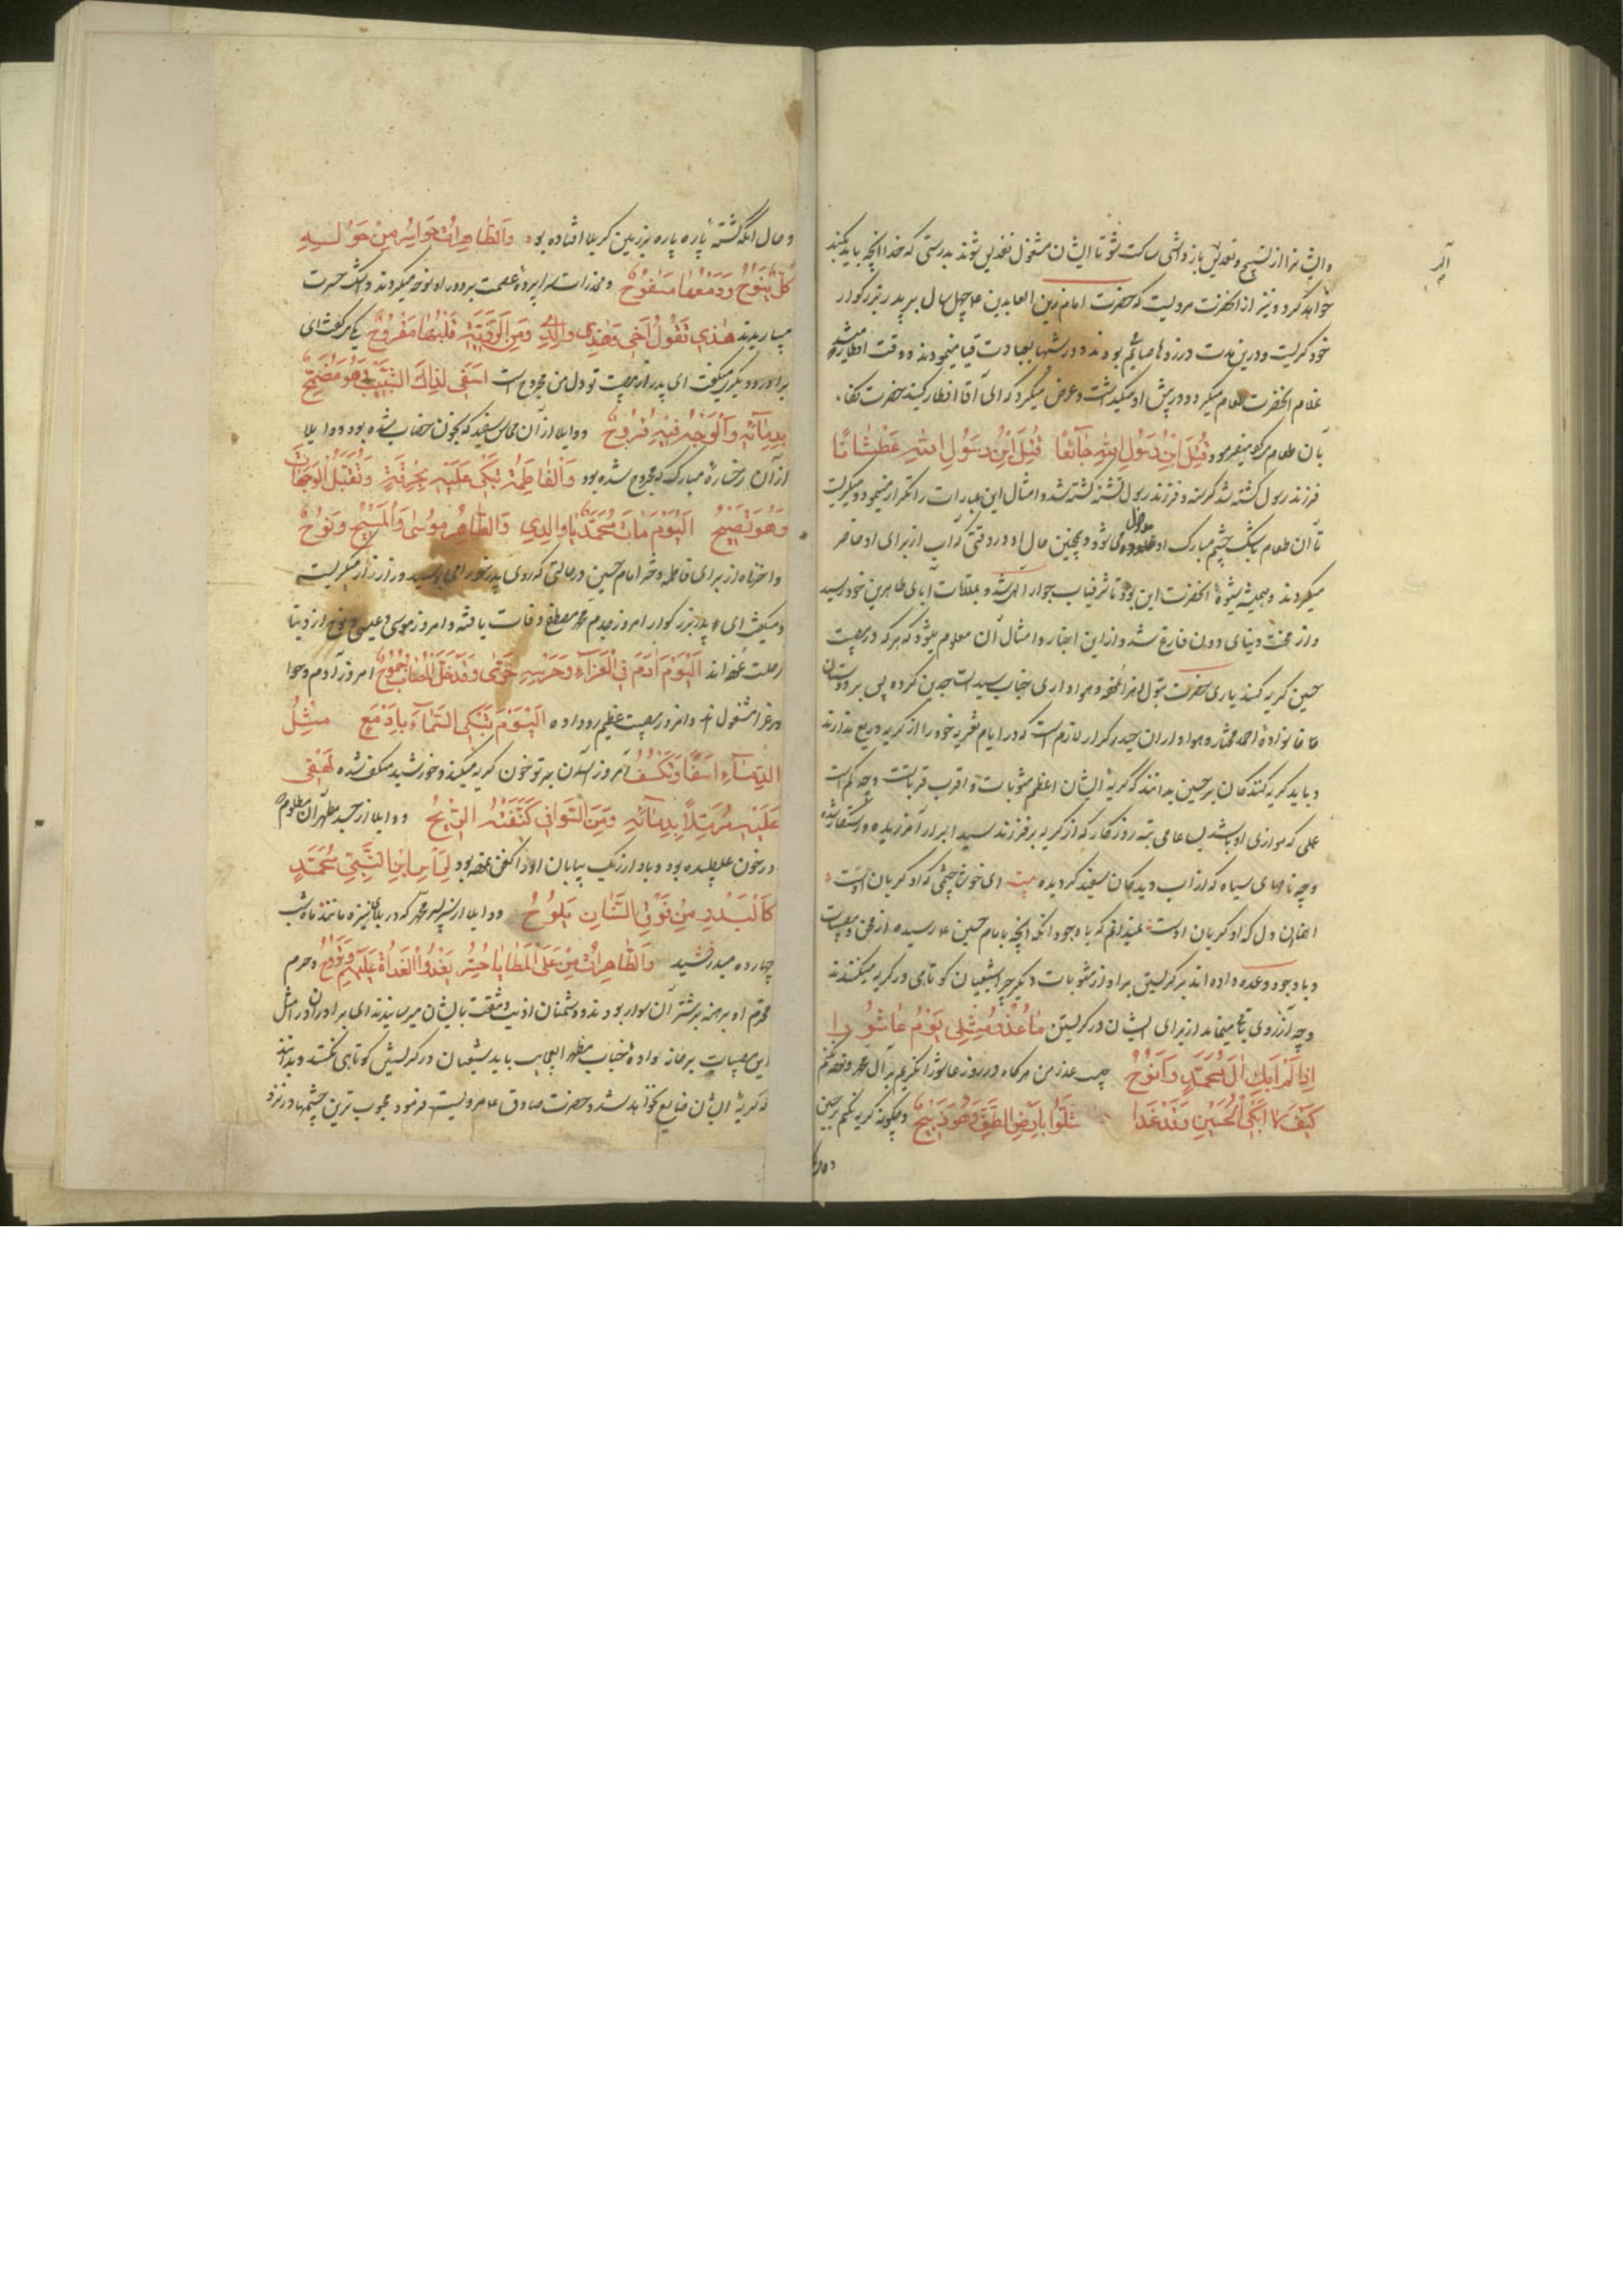 و ایشانرا از تسبیح و تقدیس باز داشتی ساکت شو تا ایشان مشغول تقدیس شوند بدرستی که خدا آنچه باید بکند
خواهد کرد و نیز از آنحضرت مرویست که حضرت امام زین العابدین ع چهل سال بر پدر بزرگوار
خود گریست و درین مدت روزها صائم بودند و در شبها بعبادت قیام مینمودند و وقت افطار
غلام آنحضرت طعام میکرد و در پیش او میگذاشت و عرض میکرد که ای آقا افطار کنید حضرت
بآن طعام میفرمود قُتِلَ ابْنُ رَسُولِ اللهِ جَائِعًا قُتِلَ ابْنُ رَسُولِ اللهِ عَطْشَانًا
فرزند رسول کشته شد گرسنه و فرزند رسول تشنه کشته شد و امثال این عبارات را تکرار مینمود و میگریست
تا آن طعام باشک چشم مبارک او می شود و همچنین حال او در وقتی که آب از برای او حاضر
میکردند و همیشه شیوهٔ آنحضرت این بود تا شرفیاب جوار الهی شد و بملاقات آبای طاهرین خود رسید
و از محنت دنیای دون فارغ شد و از این اخبار و امثال آن معلوم میشود که هر که در مصیبت
حسین گریه کند یاری حضرت بتول زهرا نموده و هواداری جناب سید الساجدین کرده پس بر دوستان
خانوادهٔ احمد مختار و هواداران حیدر کرار لازم است که در ایام تعزیه خود را از گریه دریغ ندارند
و باید گریه کنندگان بر حسین بدانند که گریهٔ ایشان اعظم مثوبات و اقرب قربات است و چه کم است
عملی که موازی او باشد بسا عاصی تبه روزگار که از گریه بر فرزند سید ابرار آمرزیده و رستگار شده
و چه نامهای سیاه که از آب دیدگان سفید گردیده بیت ای خوش چشمی که او گریان اوست
ای همایون دل که او بریان اوست نمیدانم که با وجود آنکه آنچه بامام حسین ع رسیده از محن و مصیبات
و باوجود وعده داده اند بر گریستن بر او از مثوبات دیگر چرا شیعیان کوتاهی در گریه میکنند
و چه آرزوی باقی میماند از برای ایشان در گریستن مَا عُذْرُ مِثْلِي يَوْمَ عَاشُورَا
إِذَا لَمْ أَبْكِ آلَ مُحَمَّدٍ وَأَنُوحُ چیست عذر من هرگاه در روز عاشورا نگریم بر آل محمد و نوحه نکنم
كَيْفَ لَا أَبْكِي الْحُسَيْنِ وَقَدْ غَدَا شِلْوًا بِأَرْضِ الطَّفِّ وَهُوَ ذَبِيحُ و چگونه گریه نکنم بر حسین
و حال آنکه کشته پاره پاره بر زمین کربلا افتاده بود وَالطَّاهِرَاتُ حَوَاسِرُ مِنْ حَوْلِهِ
كُلٌّ يَنُوحُ وَدَمْعُهَا مَسْفُوحُ و مخدرات سراپردهٔ عصمت بر دور او نوحه میکردند و اشک حسرت
میباریدند هٰذِي تَقُولُ أَخِي وَهٰذِي وَالِدِي وَمِنَ الرَّزِيَّةِ قَلْبُهَا مَقْرُوحُ یکی گفت ای
برادر و دیگری میگفت ای پدر از مصیبت تو دل من مجروح است أَسَفِي لِذَاكَ الشَّيْبِ وَهُوَ مُضَمَّخٌ
بِدِمَائِهِ وَالْوَجْهِ فِيهِ قُرُوحُ و واویلا از آن محاسن سفید که بخون خضاب شده بود و واویلا
از آن رخسارهٔ مبارک که مجروح شده بود وَالْفَاطِمَةُ تَبْكِي عَلَيْهِ بِحُرْقَةٍ وَتُقَبِّلُ الْوَجَنَاتِ
وَهُوَ تَصِيحُ الْيَوْمَ مَاتَ مُحَمَّدٌ يَا وَالِدِي وَالطَّاهِرُ مُوسَى وَالْمَسِيحُ وَنُوحُ
واحزناه از برای فاطمه دختر امام حسین در حالتی که روی پدر خود را می بوسید و زار زار میگریست
و میگفت ای پدر بزرگوار امروز جدم محمد مصطفی وفات یافته و امروز موسی و عیسی و نوح از دنیا
رحلت نموده اند الْيَوْمَ آدَمُ فِي الْعَزَاءِ وَعِرْسِهِ حَوَّى امروز آدم و حوا
در عزا مشغول اند و امروز مصیبت عظیم رو داده الْيَوْمَ تَبْكِي السَّمَاءُ بِأَدْمُعٍ مِثْلُ
الدِّمَاءِ أَسَفًا وَتَكْسُفُ امروز آسمان بر تو خون گریه میکند و خورشید منکسف شده لَهْفِي
عَلَيْهِ مُرَمَّلًا بِدِمَائِهِ وَمِنَ السَّوَافِي كَفَّنَتْهُ الرِّيحُ و واویلا از جسد مطهر آن مظلوم
در خون غلطیده بود و باد از ریگ بیابان او را کفن نموده بود لِرَأْسِ ابْنِ النَّبِيِّ مُحَمَّدٍ
كَالْبَدْرِ مِنْ فَوْقِ السِّنَانِ يَلُوحُ و واویلا از سر پسر پیغمبر که در بالای نیزه مانند ماه شب
چهارده میدرخشید وَالطَّاهِرَاتُ مِنْ عَلَى الْمَطَايَا حُسَّرٌ و حرم
محترم او برهنه بر شتران سوار بودند و دشمنان اذیت و مشقت بایشان میرسانیدند ای برادران در مثل
این مصیبات بر خانوادهٔ جناب مظهر العجایب باید شیعیان در گریستن کوتاهی نکنند و بدانند
که گریهٔ ایشان ضایع نخواهد شد و حضرت صادق ع مرویست فرمود محبوب ترین چشمها در نزد